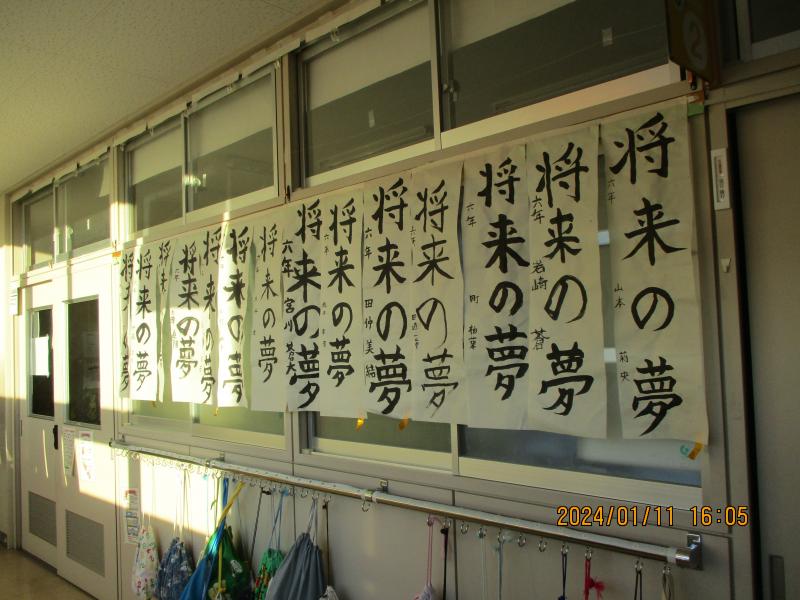 将来の夢
六年
山本
将来の夢
六年
岩崎 蒼
将来の夢
六年
町 柚葉
将来の夢
将来の夢
六年
田仲 美結
将来の夢
将来の夢
六年
宮川 蒼大
将来の夢
将来の夢
将来の夢
将来の夢
将来
将来の夢
将来の夢
2
2024/01/11 16:05